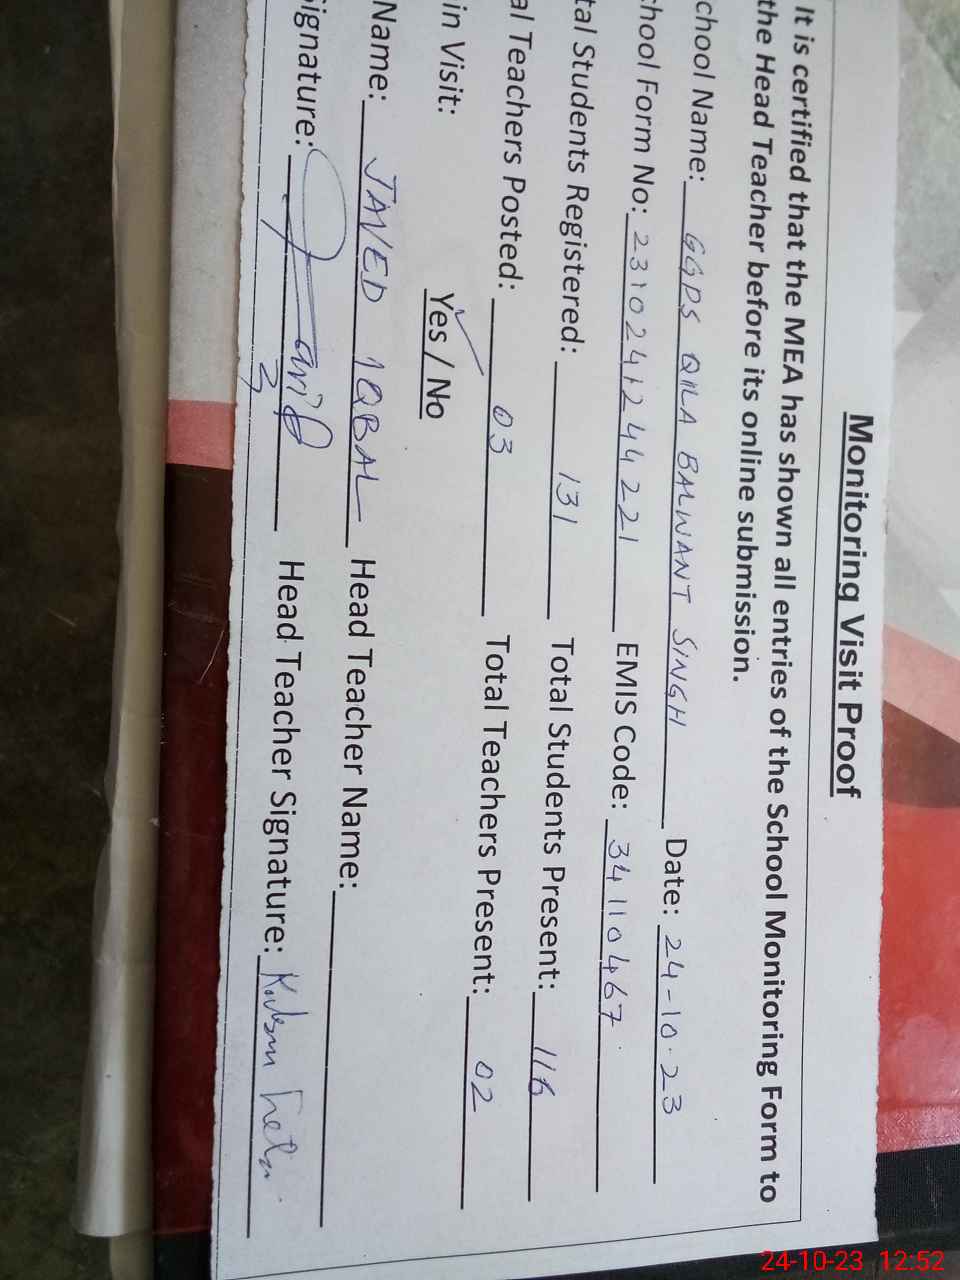 Monitoring Visit Proof
It is certified that the MEA has shown all entries of the School Monitoring Form to
the Head Teacher before its online submission.
chool Name: GGPS QILA BALWANT SINGH Date: 24-10-23
chool Form No: 2310241244221 EMIS Code: 34110467
tal Students Registered: 131 Total Students Present: 116
al Teachers Posted: 03 Total Teachers Present: 02
in Visit: Yes / No
Name: JAVED IQBAL Head Teacher Name:
ignature: Javid Head Teacher Signature:
24-10-23 12:52